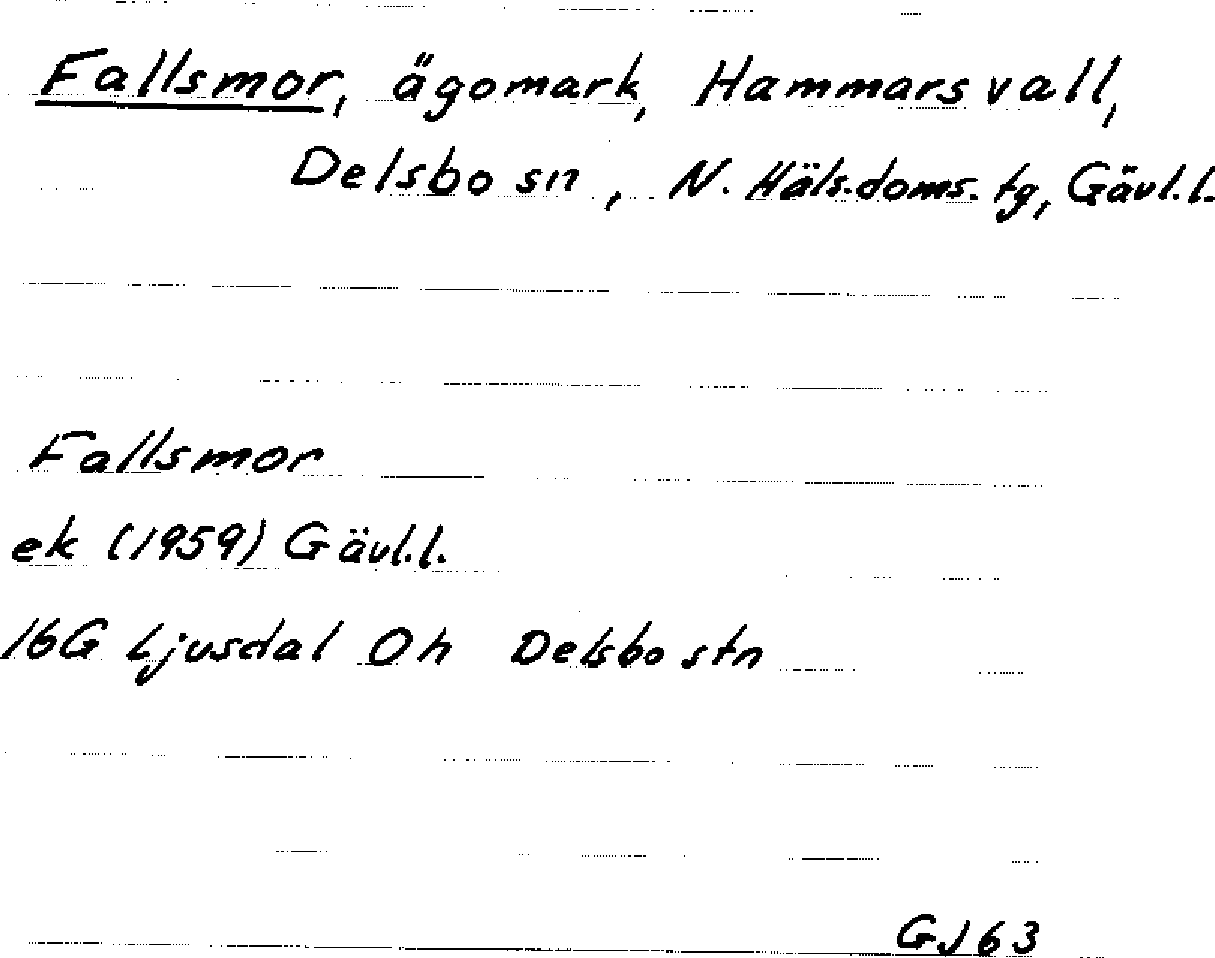 Fallsmor, ägomark, Hammarsvall,
Delsbo sn, N. Häls. doms. tg, Gävl.l.
Fallsmor
ek (1959) Gävl.l.
16G Ljusdal Oh Delsbo stn
GJ 63